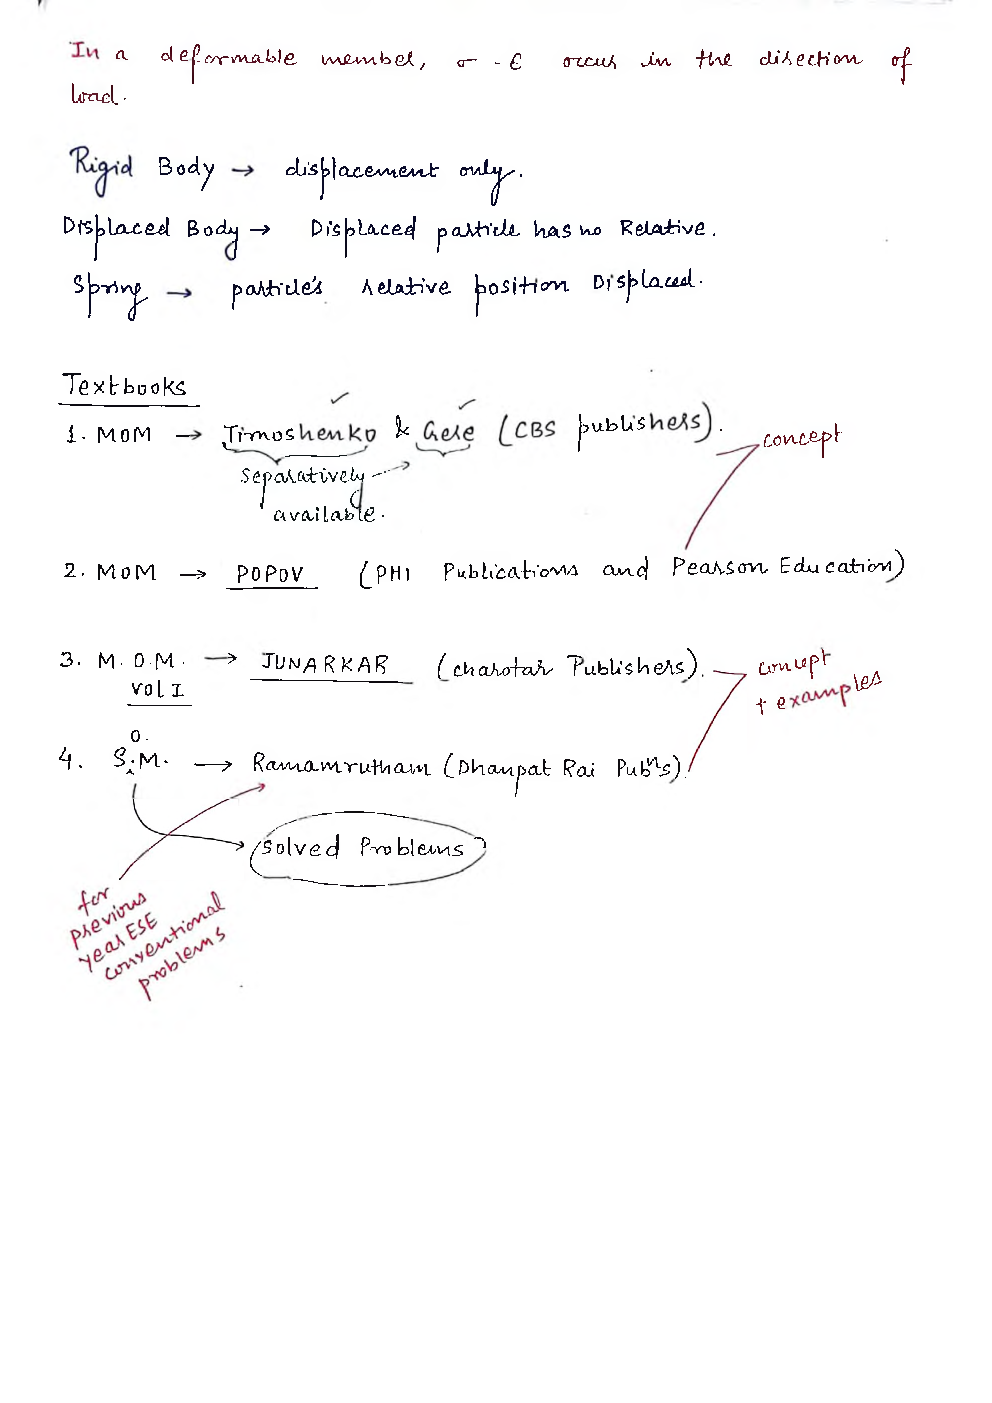 In a deformable member, σ - ε occur in the direction of
load.
Rigid Body → displacement only.
Displaced Body → Displaced particle has no Relative.
Spring → particle's relative position Displaced.
Textbooks
1. MOM → Timoshenko & Gere (CBS publishers).
concept
Separatively
available.
2. MOM → POPOV (PHI Publications and Pearson Education)
3. M.O.M. → JUNARKAR (charotar Publishers).
vol I
concept
+ examples
O.
4. S.M. → Ramamrutham (Dhanpat Rai Pubⁿs)
Solved Problems
for
previous
year ESE
conventional
problems